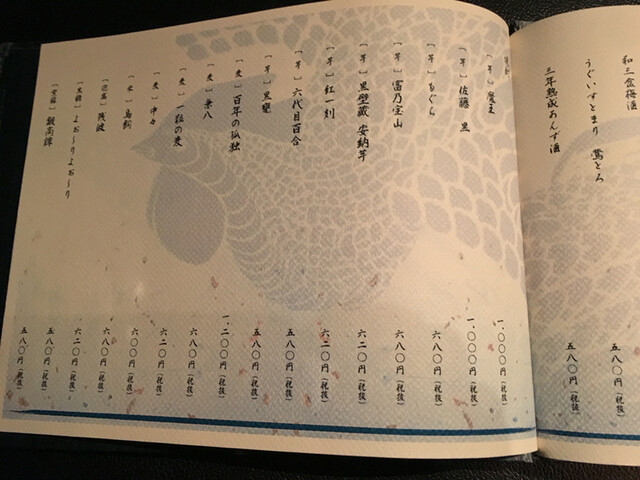 和三盆梅酒 五八〇円(税抜)
うぐいすとまり 鶯とろ
三年熟成あんず酒 五八〇円(税抜)
[芋] 魔王 一、〇〇〇円(税抜)
[芋] 佐藤 黒 一、〇〇〇円(税抜)
[芋] もぐら 六八〇円(税抜)
[芋] 富乃宝山 六八〇円(税抜)
[芋] 黒壁蔵 安納芋 六二〇円(税抜)
[芋] 紅一刻 六二〇円(税抜)
[芋] 六代目百合 五八〇円(税抜)
[芋] 黒甕 五八〇円(税抜)
[麦] 百年の孤独 一、二〇〇円(税抜)
[麦] 兼八 六八〇円(税抜)
[麦] 一粒の麦 六二〇円(税抜)
[麦] 中々 六〇〇円(税抜)
[米] 鳥飼 六八〇円(税抜)
[泡盛] 残波 六二〇円(税抜)
[黒糖] よお〜りよお〜り 五八〇円(税抜)
[紫蘇] 鍛高譚 五八〇円(税抜)